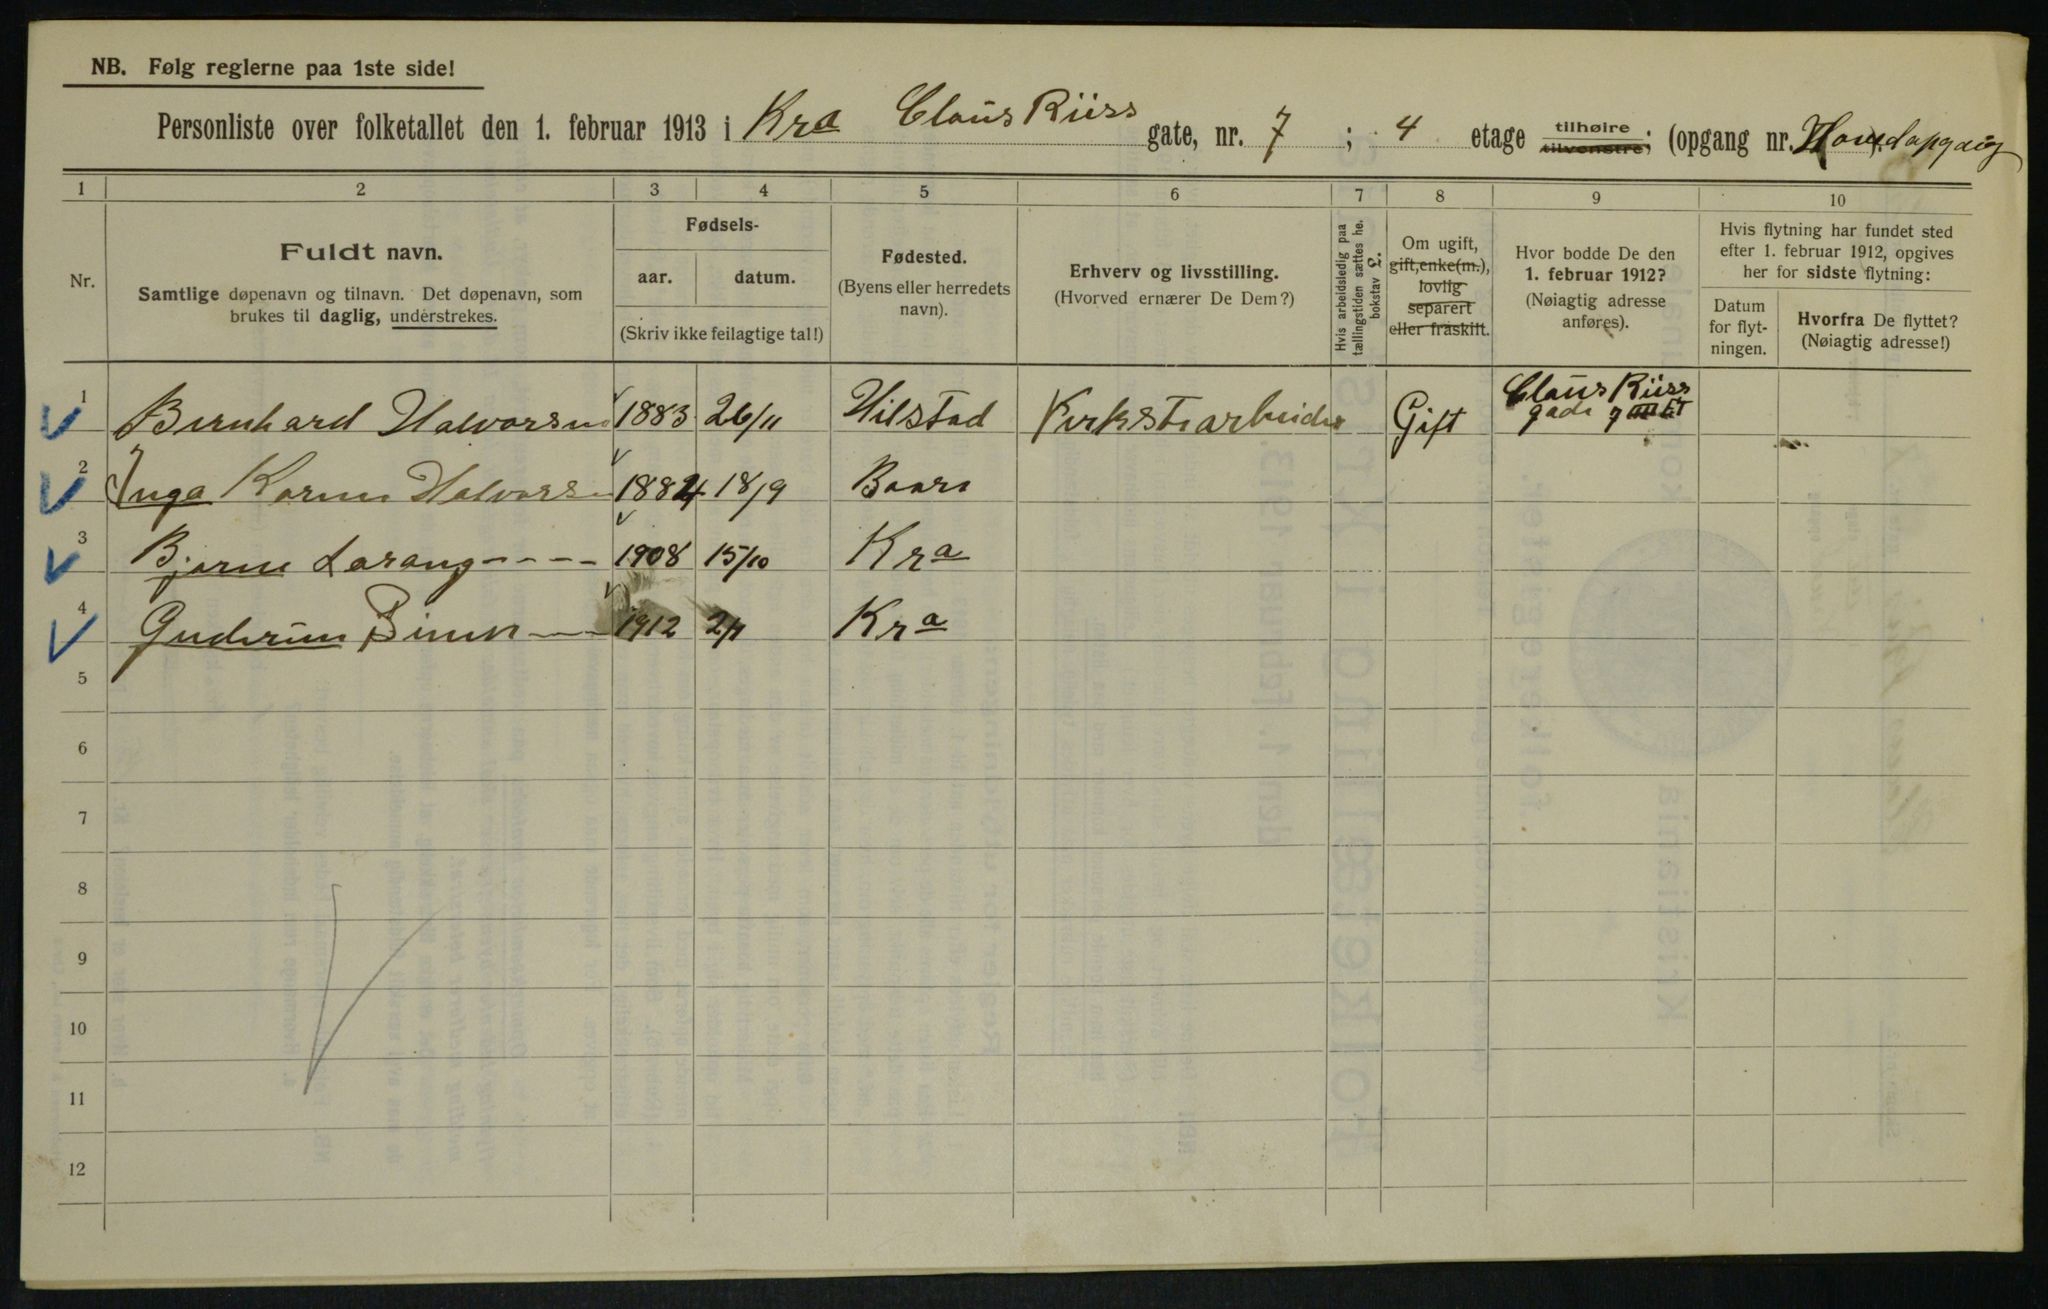 NB. Følg reglerne paa 1ste side!
Personliste over folketallet den 1. februar 1913 i Kra Claus Riiss gate, nr. 7; 4 etage tilhøire tilvenstre; (opgang nr.
1 2 3 4 5 6 7 8 9 10
Nr.
Fuldt navn.
Samtlige døpenavn og tilnavn. Det døpenavn, som
brukes til daglig, understrekes.
Fødsels-
aar. datum.
(Skriv ikke feilagtige tal!)
Fødested.
(Byens eller herredets
navn).
Erhverv og livsstilling.
(Hvorved ernærer De Dem?)
Hvis arbeidsledig paa
tællingstiden sættes he.
bokstav L.
Om ugift,
gift, enke(m.),
lovlig
separert
eller fraskilt.
Hvor bodde De den
1. februar 1912?
(Nøiagtig adresse
anføres).
Hvis flytning har fundet sted
efter 1. februar 1912, opgives
her for sidste flytning:
Datum
for flyt-
ningen.
Hvorfra De flyttet?
(Nøiagtig adresse!)
1 Bernhard Halvorsen 1883 26/11 Hilstad Gift Claus Riiss
gade 7
2 Inga Halvorsen 1884 18/9
3 Bjarne 1908 15/10 Kra
4 Guderun 1912 Kra
5
6
7
8
9
10
11
12